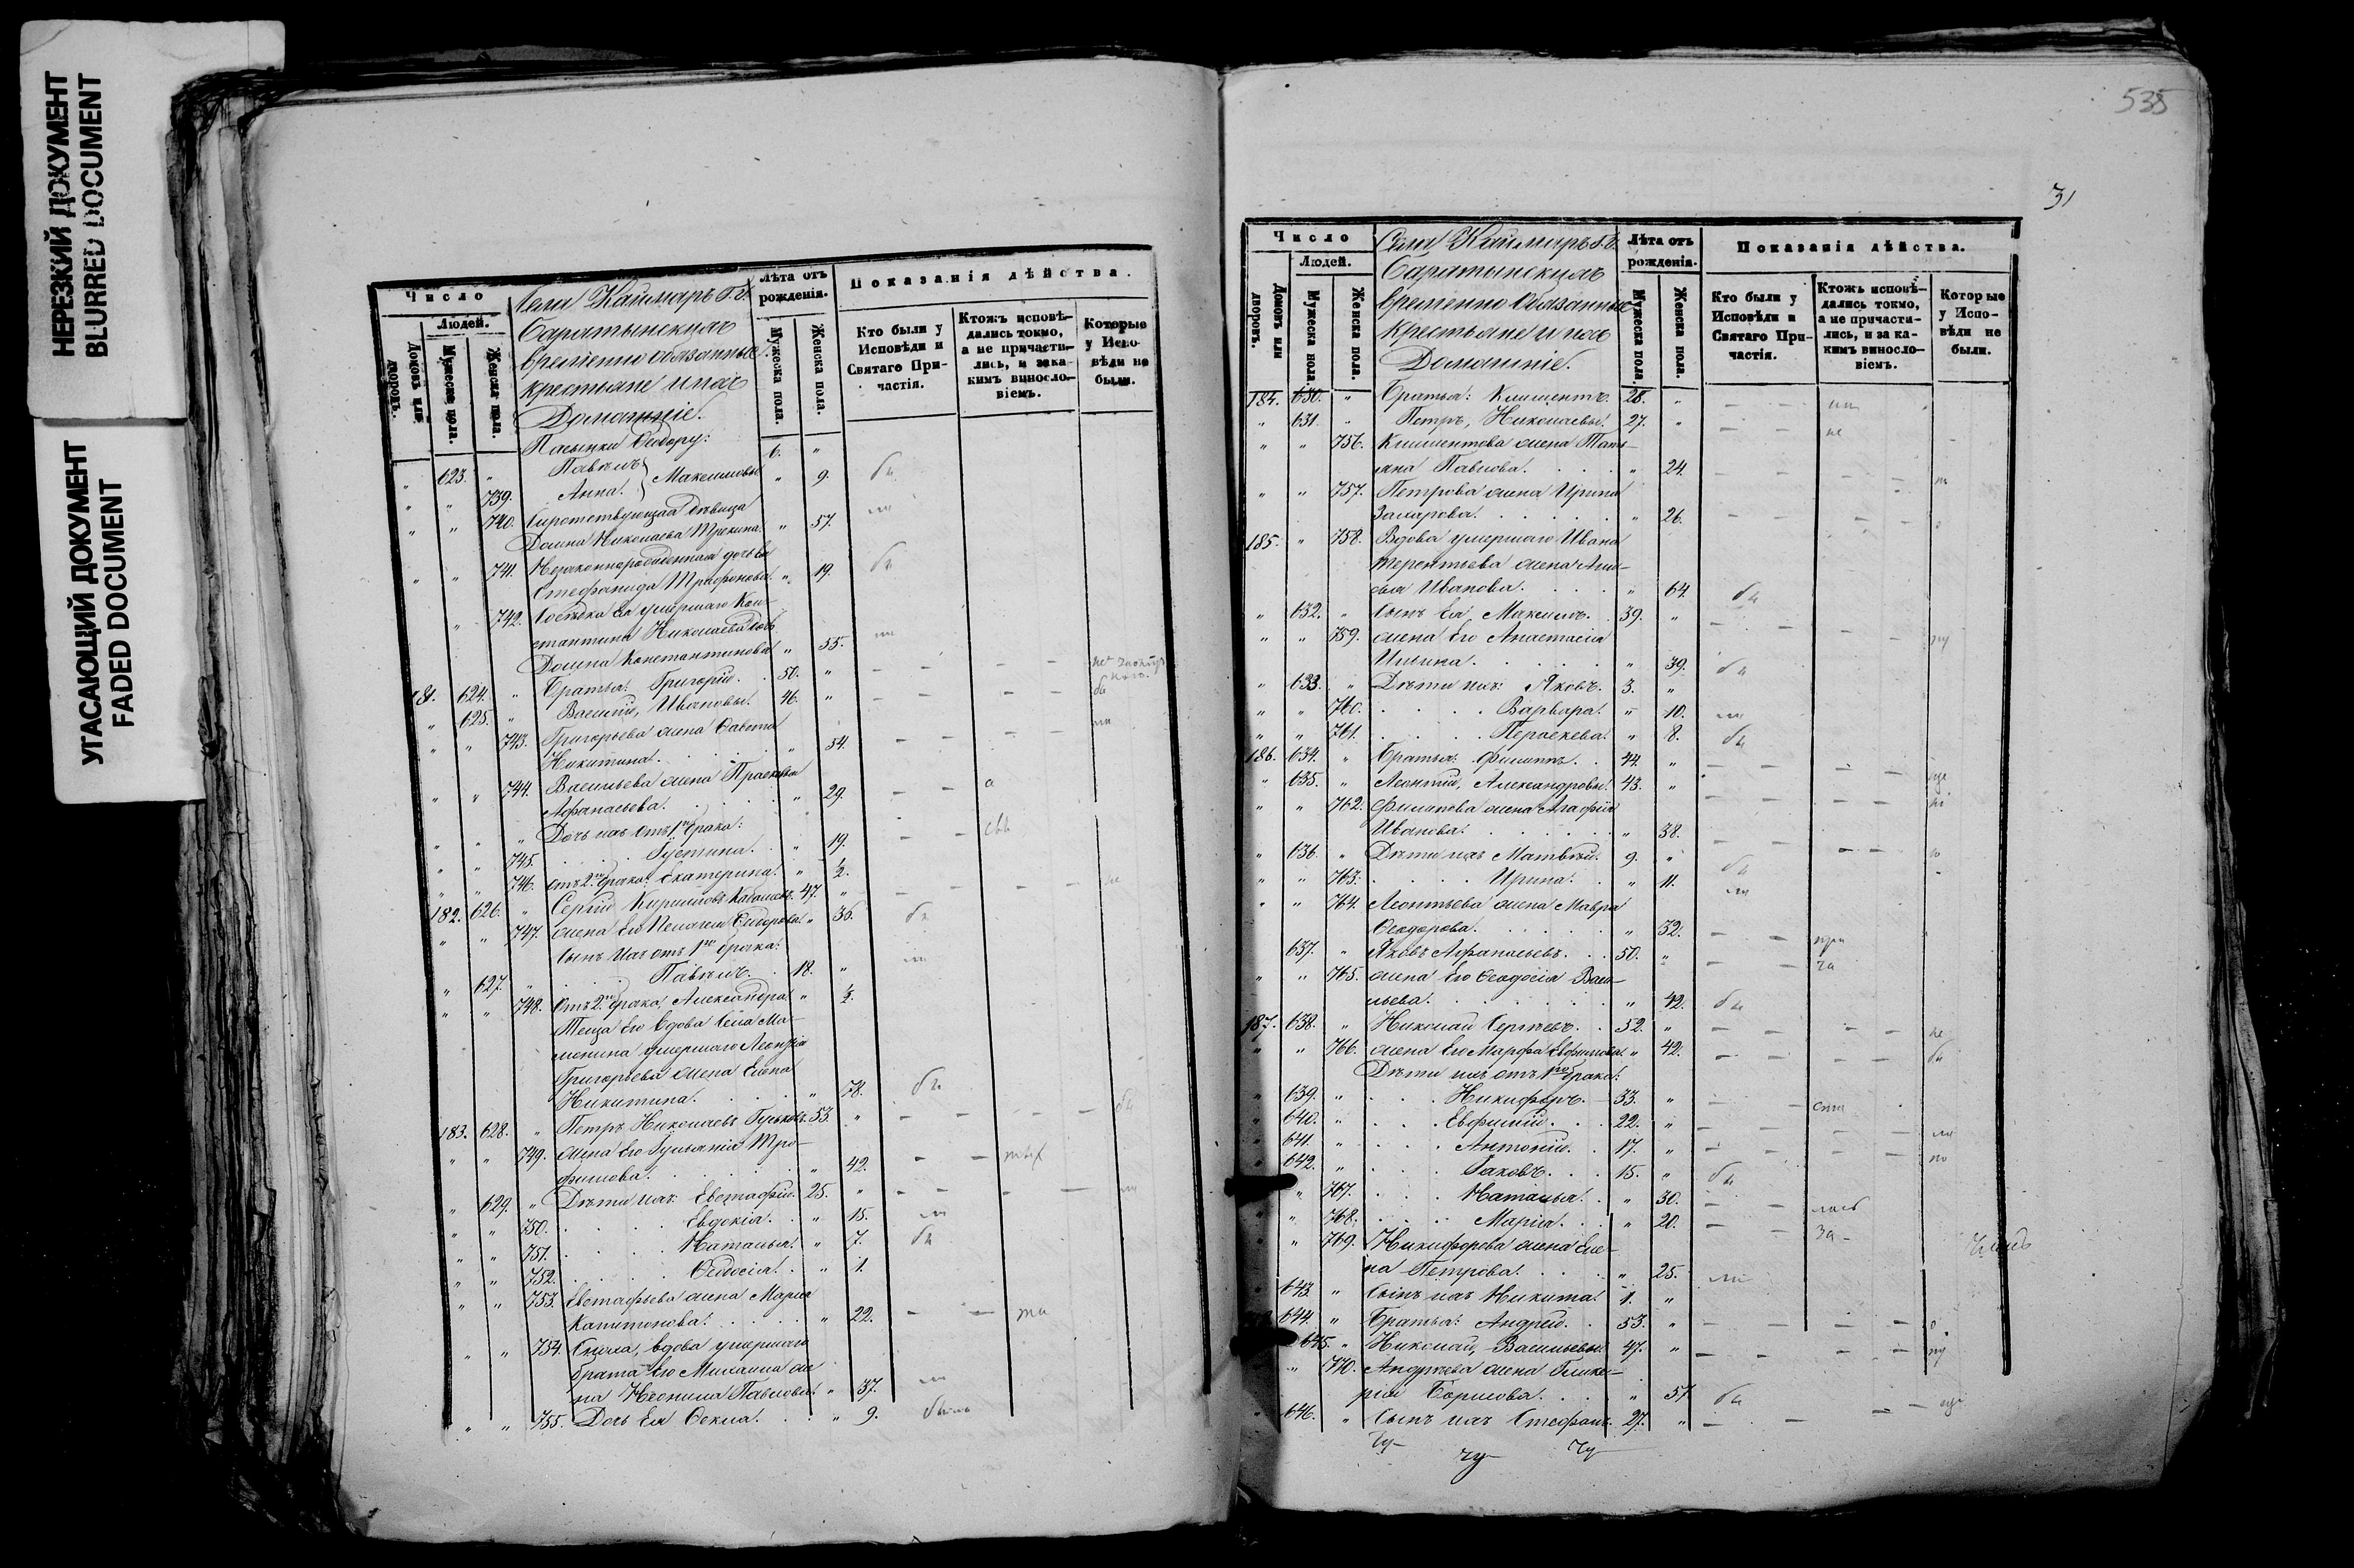 НЕРЕЗКИЙ ДОКУМЕНТ
BLURRED DOCUMENT
УГАСАЮЩИЙ ДОКУМЕНТ
FADED DOCUMENT
Число
Людей.
Домовъ или дворовъ.
Мужеска пола.
Женска пола.
Села Каймаръ Г.г.
Саратынскихъ
временно обязанные
крестьяне и ихъ
Домашніе.
Лѣта отъ рожденія.
Мужеска пола.
Женска пола.
Показанія дѣйства.
Кто были у Исповѣди и Святаго Причастія.
Ктожъ исповѣдались токмо, а не причастились, и за какимъ винословіемъ.
Которые у Исповѣди не были.
Пасынки Сидору:
" 623. " Павелъ 6. "
" " 739. Анна } Максимовы " 9. бы
" " 740. Сиротствующая дѣвица
Домна Николаева " 57. ли
" " 741. Незаконнорожденная дочь Ея
Стефанида Трифонова " 19. бы
" 742. Сосѣдка Ея умершаго Кон-
стантина Николаева дочь
Домна Константинова " 55. ли
181. 624. " Братья: Григорій. 50. "
" 625. " Василій, Ивановы. 46. " бы
" " 743. Григорьева жена Савета
Никитина. " 54. ли
" " 744. Васильева жена Прасковья
Афанасьева. " 29.
" " " Дочь ихъ отъ 1го брака:
" " 745. Іустина. " 19.
" " 746. отъ 2го брака: Екатерина. " ½.
182. 626. " Сергій Кириловъ 47. " не
" " 747. жена Его Пелагея Сидорова " 36. бы
Сынъ Ихъ отъ 1го брака:
" 627. " Павелъ. 18. " ли
" " 748. Отъ 2го брака: Александра " ½.
Теща Его вдова Села Ма-
монина умершаго Леонтія
Григорьева жена Елена
Никитина. " 78. бы
183. 628. " Петръ Николаевъ Гурьковъ. 53. " бы
" " 749. жена Его Іуліанія Тро-
фимова. " 42.
" 629. " Дѣти ихъ: Евстафій. 25. " ли
" " 750. Евдокія. " 15. ли
" " 751. Наталья. " 7. бы
" " 752. Ѳедосія. " 1.
" " 753. Евстафьева жена Марія
Капитонова. " 22.
" " 754. Сноха, вдова умершаго
брата Его Михаила же
на Неонила Павлова " 37. ли
" " 755. Дочь Ея Ѳекла. " 9. были
535
31
Число
Людей.
Домовъ или дворовъ.
Мужеска пола.
Женска пола.
Села Каймаръ Г.г.
Саратынскихъ
временно обязанные
крестьяне и ихъ
Домашніе.
Лѣта отъ рожденія.
Мужеска пола.
Женска пола.
Показанія дѣйства.
Кто были у Исповѣди и Святаго Причастія.
Ктожъ исповѣдались токмо, а не причастились, и за какимъ винословіемъ.
Которые у Исповѣди не были.
184. 630. " Братья: Климентъ. 28. "
" 631. " Петръ, Николаевы. 27. " не
" " 756. Климентова жена Тать-
яна Павлова. " 24.
" " 757. Петрова жена Ирина
Захарова. " 26.
185. " 758. Вдова умершаго Ивана
Терентьева жена Ани-
сья Иванова. " 64. бы
" 632. " Сынъ Ея Максимъ. 39. "
" " 759. жена Его Анастасія
Ильина. " 39. бы
" 633. " Дѣти ихъ: Яковъ. 3. "
" " 760. Варвара. " 10. ли
" " 761. Параскева. " 8. бы
186. 634. " Братья: Филиппъ. 44. "
" 635. " Леонтій, Александровы. 43. "
" " 762. Филипова жена Агафія
Иванова. " 38.
" 636. " Дѣти ихъ Матвѣй. 9. " бы
" " 763. Ирина. " 11. ли
" " 764. Леонтьева жена Мавра
Ѳеодорова. " 32.
637. " Яковъ Афанасьевъ. 50. "
" " 765. жена Его Ѳеодосія Васи-
льева. " 42. бы
187. 638. " Николай Сергѣевъ. 52. " не
" " 766. жена Его Марфа Евфимова " 42. бы
Дѣти ихъ отъ 1го брака:
" 639. " Никифоръ. 33. "
" 640. " Евфимій. 22. " ли
" 641. " Антоній. 17. "
642. " Іаковъ. 15. " бы
" 767. Наталья. " 30.
" 768. Марія. " 20. за
" 769. Никифорова жена Еле-
на Петрова. " 25. ли
643. " Сынъ ихъ Никита. 1. "
644. " Братья: Андрей. 53. "
645. " Николай, Васильевы. 47. "
" 770. Андреева жена Глике-
рія Борисова. " 57 бы
646. " Сынъ ихъ Стефанъ. 27. "